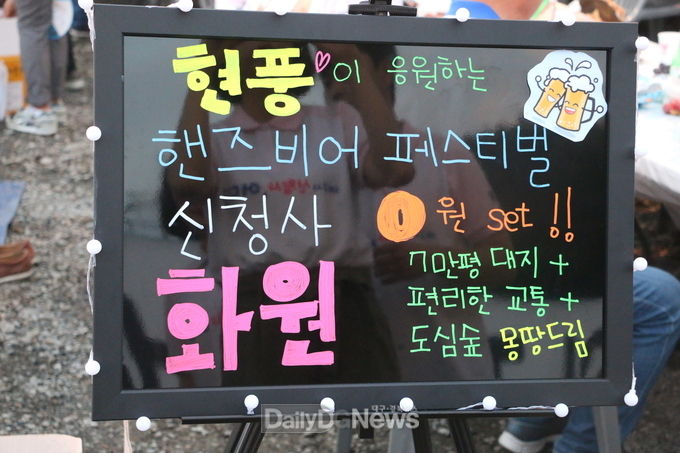 현풍♡이 응원하는
핸즈비어 페스티벌
신청사 0원 set !!
화원
7만평 대지 +
편리한 교통 +
도심숲 몽땅드림
대구·경북
DailyDGNews